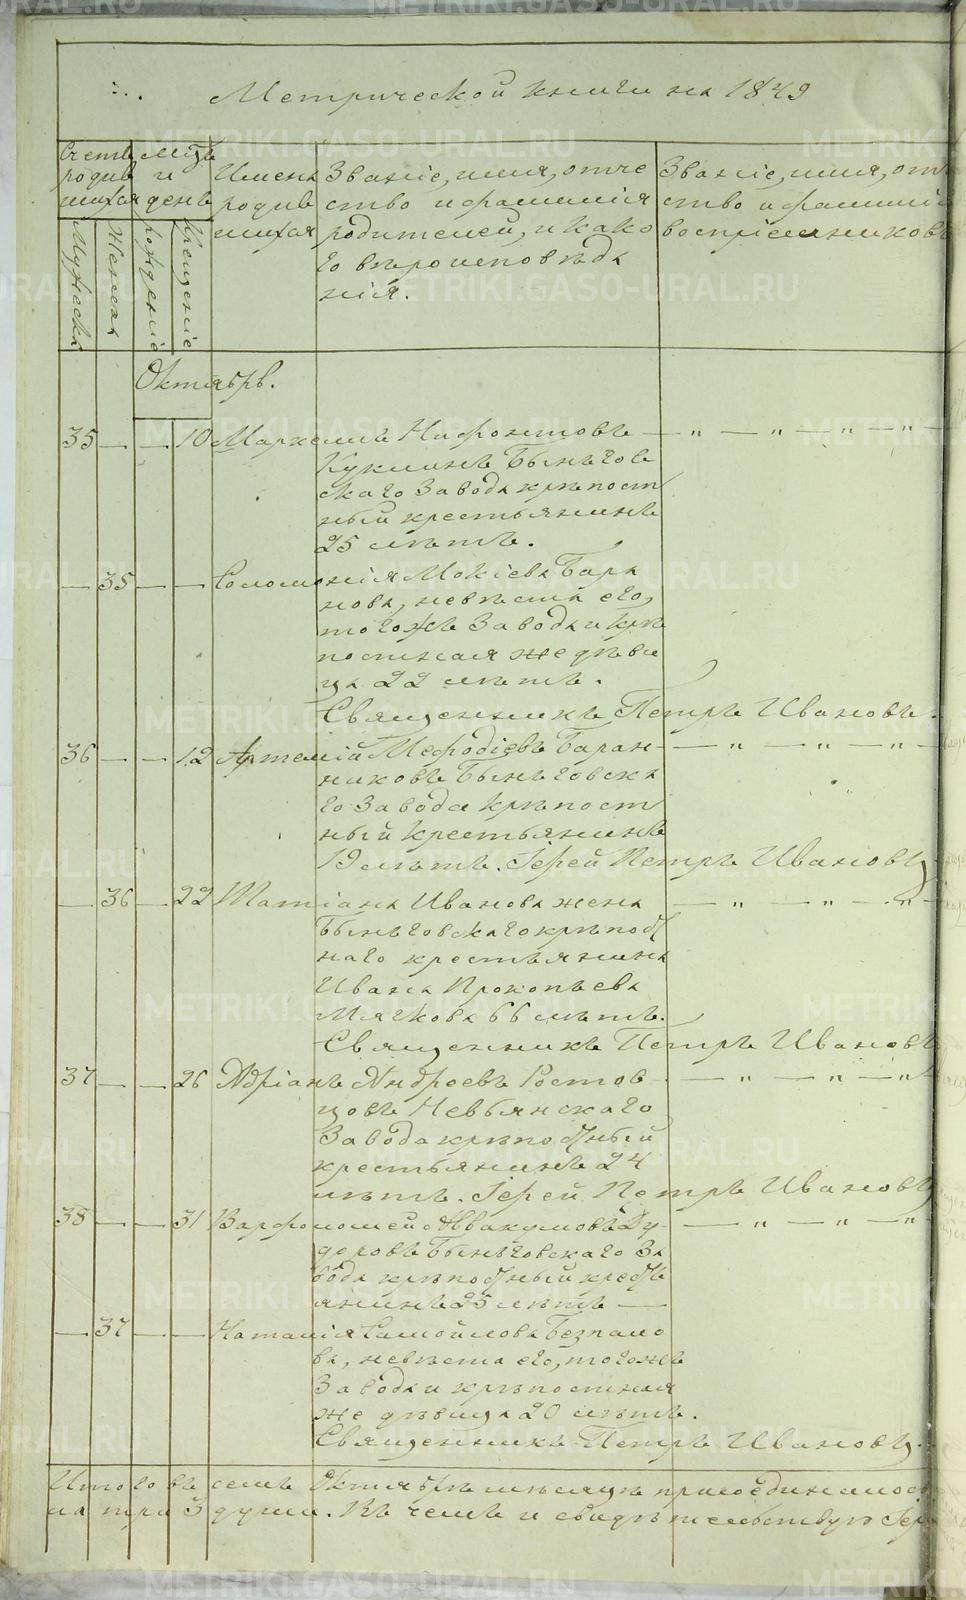 Метрической книги на 1849
Счетъ родив шихся
Мцъ и день
Имена родив шихся
Званіе, имя, отче
ство и фамилія
родителей, и како
го вѣроисповѣда
нія.
Званіе, имя, отч
ство и фамилія
воспріемниковъ
Мужеска
Женска
рожденіе
крещеніе
Октябрь.
35 — — 10 Маркеллъ Нифонтовъ — „ — „ — „ — „ —
Куклинъ Быньгов
скаго Завода крѣпост
ный крестьянинъ
25 лѣтъ.
— 35 — — Соломонія Мокіева Бара
нова, невѣста его,
тогожъ Завода и крѣ
постная же дѣви
ца 22 лѣтъ.
Священникъ Петръ Ивановъ.
36 — — 12 Артемій Меѳодіевъ Баран- — „ — „ — „
никовъ Быньговска
го Завода крѣпост
ный крестьянинъ
19 лѣтъ. Іерей Петръ Ивановъ
— 36 — 22 Татіана Иванова жена — „ — „ — „
Быньговскаго крѣпост
наго крестьянина
Ивана Прокопьева
Мягкова 66 лѣтъ.
Священникъ Петръ Ивановъ
37 — — 26 Адріанъ Андреевъ Ростов- — „ — „ — „
цовъ Невьянскаго
Завода крѣпостный
крестьянинъ 24
лѣтъ. Іерей Петръ Ивановъ
38 — — 31 Варфоломей Аввакумовъ Ѳу- — „ — „ — „
доровъ Быньговскаго За
вода крѣпостный кресть
янинъ 25 лѣтъ —
— 37 — — Наталія Самойлова Безпало
ва, невѣста его, тогоже
Завода и крѣпостная
же дѣвица 20 лѣтъ.
Священникъ Петръ Ивановъ.
Итого въ семъ Октябрѣ мѣсяцѣ присоединилось
на три 3 души. Въ чемъ и свидѣтельствую Іер
METRIKI.GASO-URAL.RU